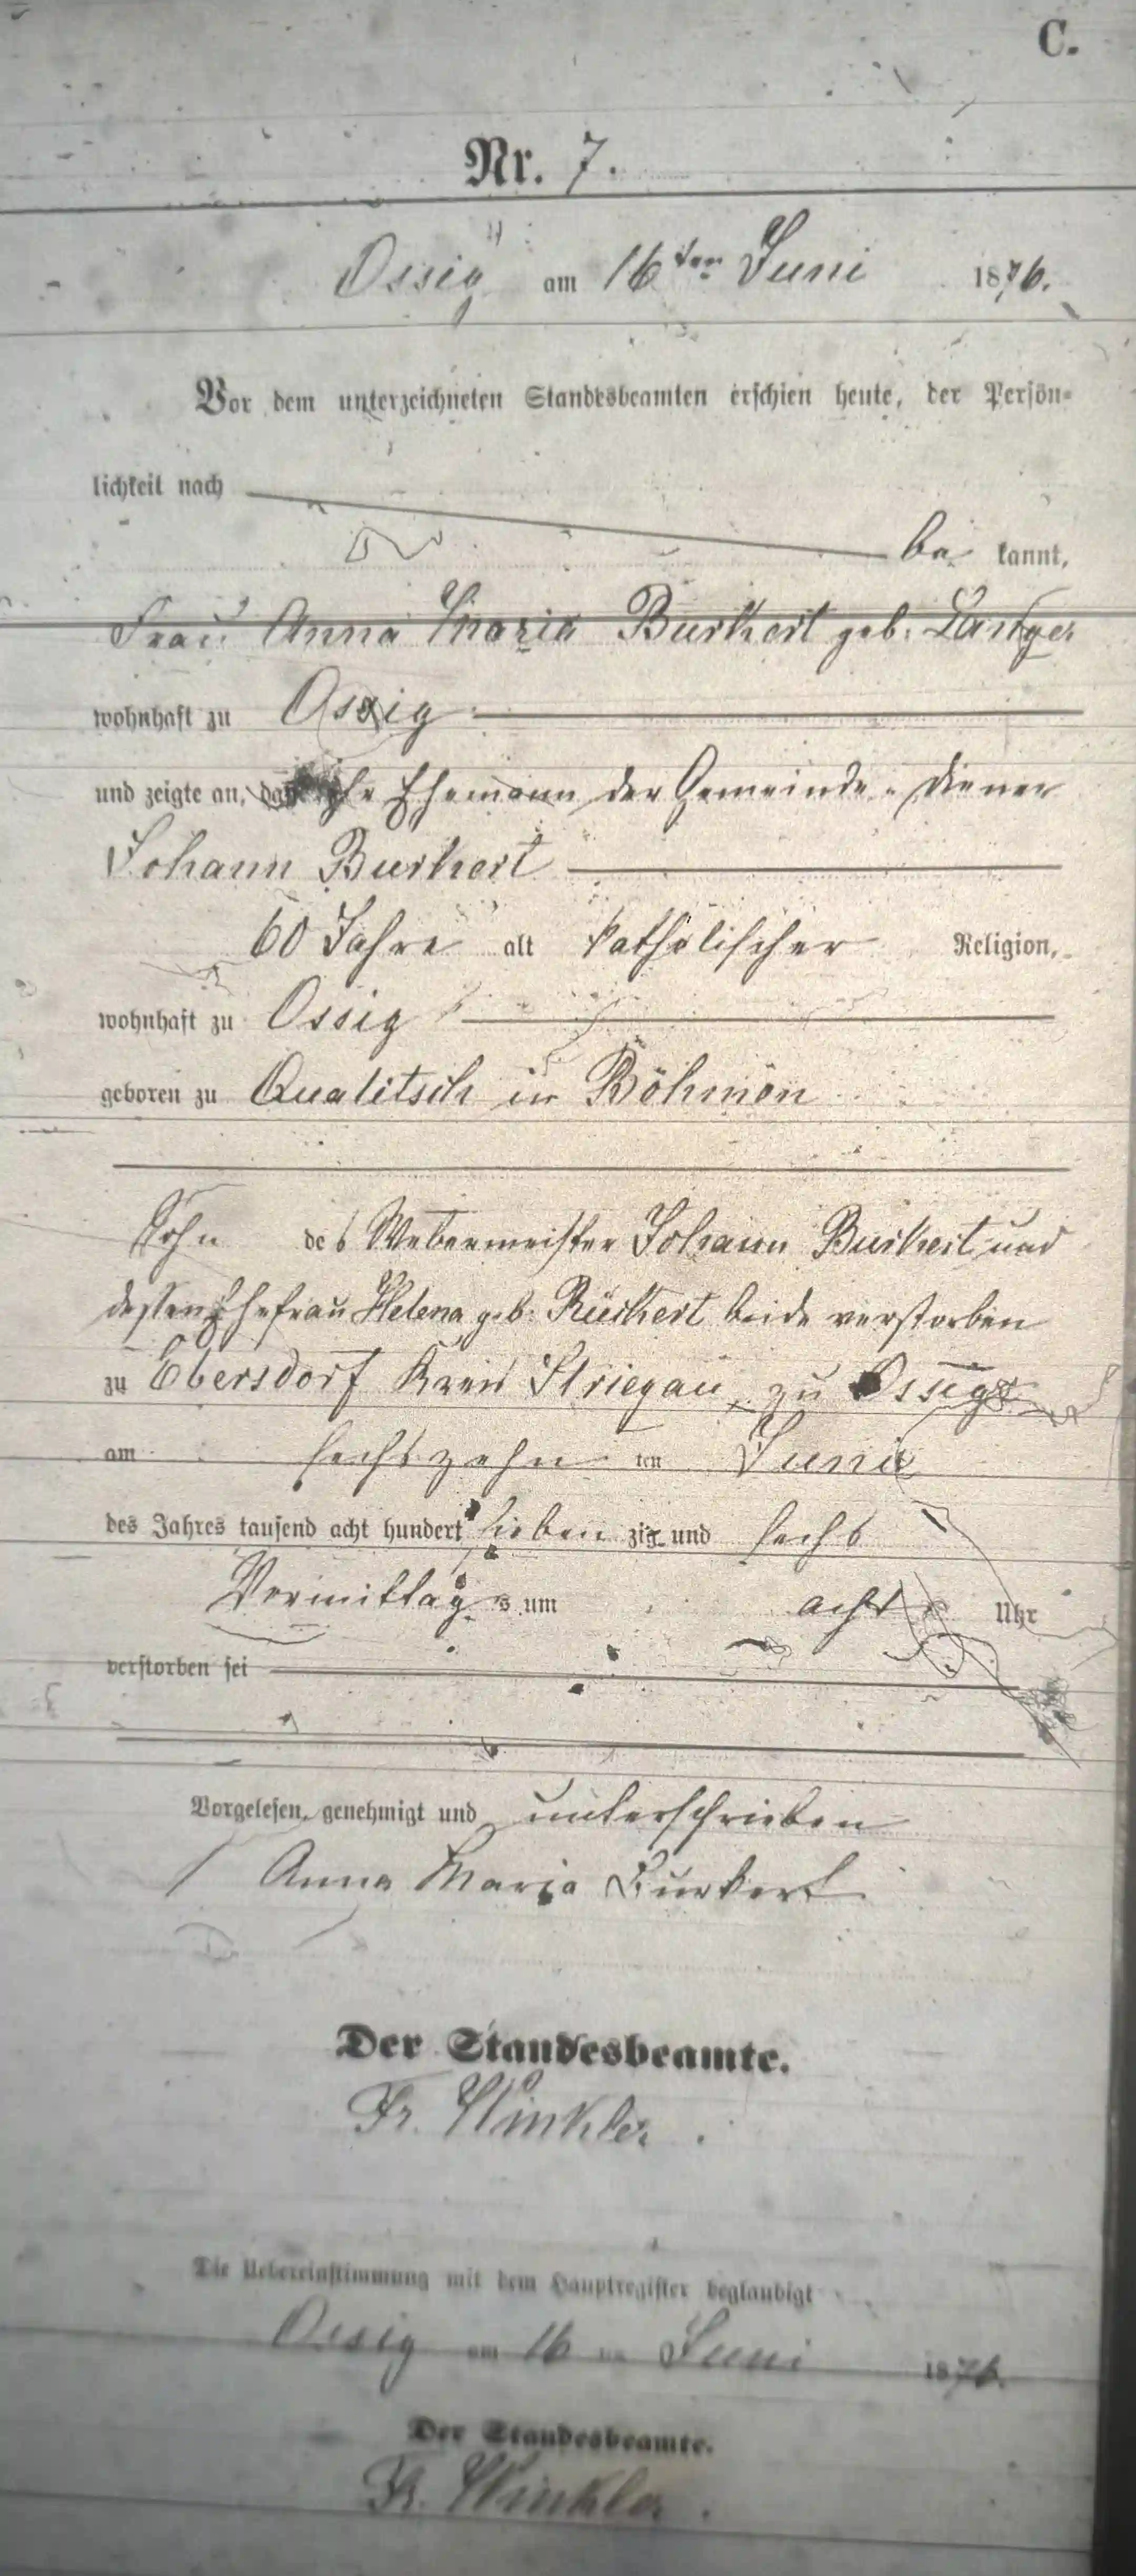 C.
Nr. 7.
Ossig am 16ten Juni 1876.
Vor dem unterzeichneten Standesbeamten erschien heute, der Persön-
lichkeit nach
be kannt,
Frau Anna Maria Burkert geb.
wohnhaft zu Ossig
und zeigte an, daß ihr Ehemann der Gemeinde-Diener
Johann Burkert
60 Jahre alt katholischer Religion,
wohnhaft zu Ossig
geboren zu Qualitsch in Böhmen
Sohn des Webermeister Johann Burkert und
dessen Ehefrau Helena geb. Rückert beide verstorben
zu Ebersdorf Kreis Striegau, zu Ossig
am sechszehn ten Juni
des Jahres tausend acht hundert sieben zig und sechs
Vormittag s um acht Uhr
verstorben sei
Vorgelesen, genehmigt und unterschrieben
Anna Maria Burkert
Der Standesbeamte.
Fr. Winkler.
Die Uebereinstimmung mit dem Hauptregister beglaubigt
Ossig am 16 ten Juni 1876.
Der Standesbeamte.
Fr. Winkler.